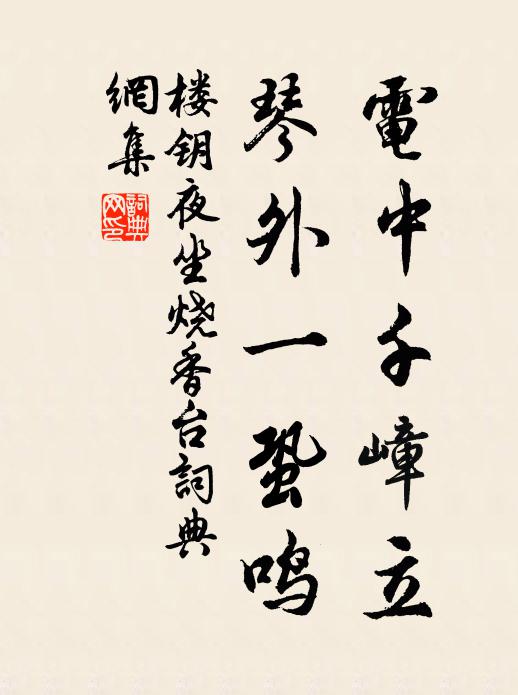 電中千嶂立
琴外一蛩鸣
楼钥夜坐烧香台詞典
網集
詞典网印